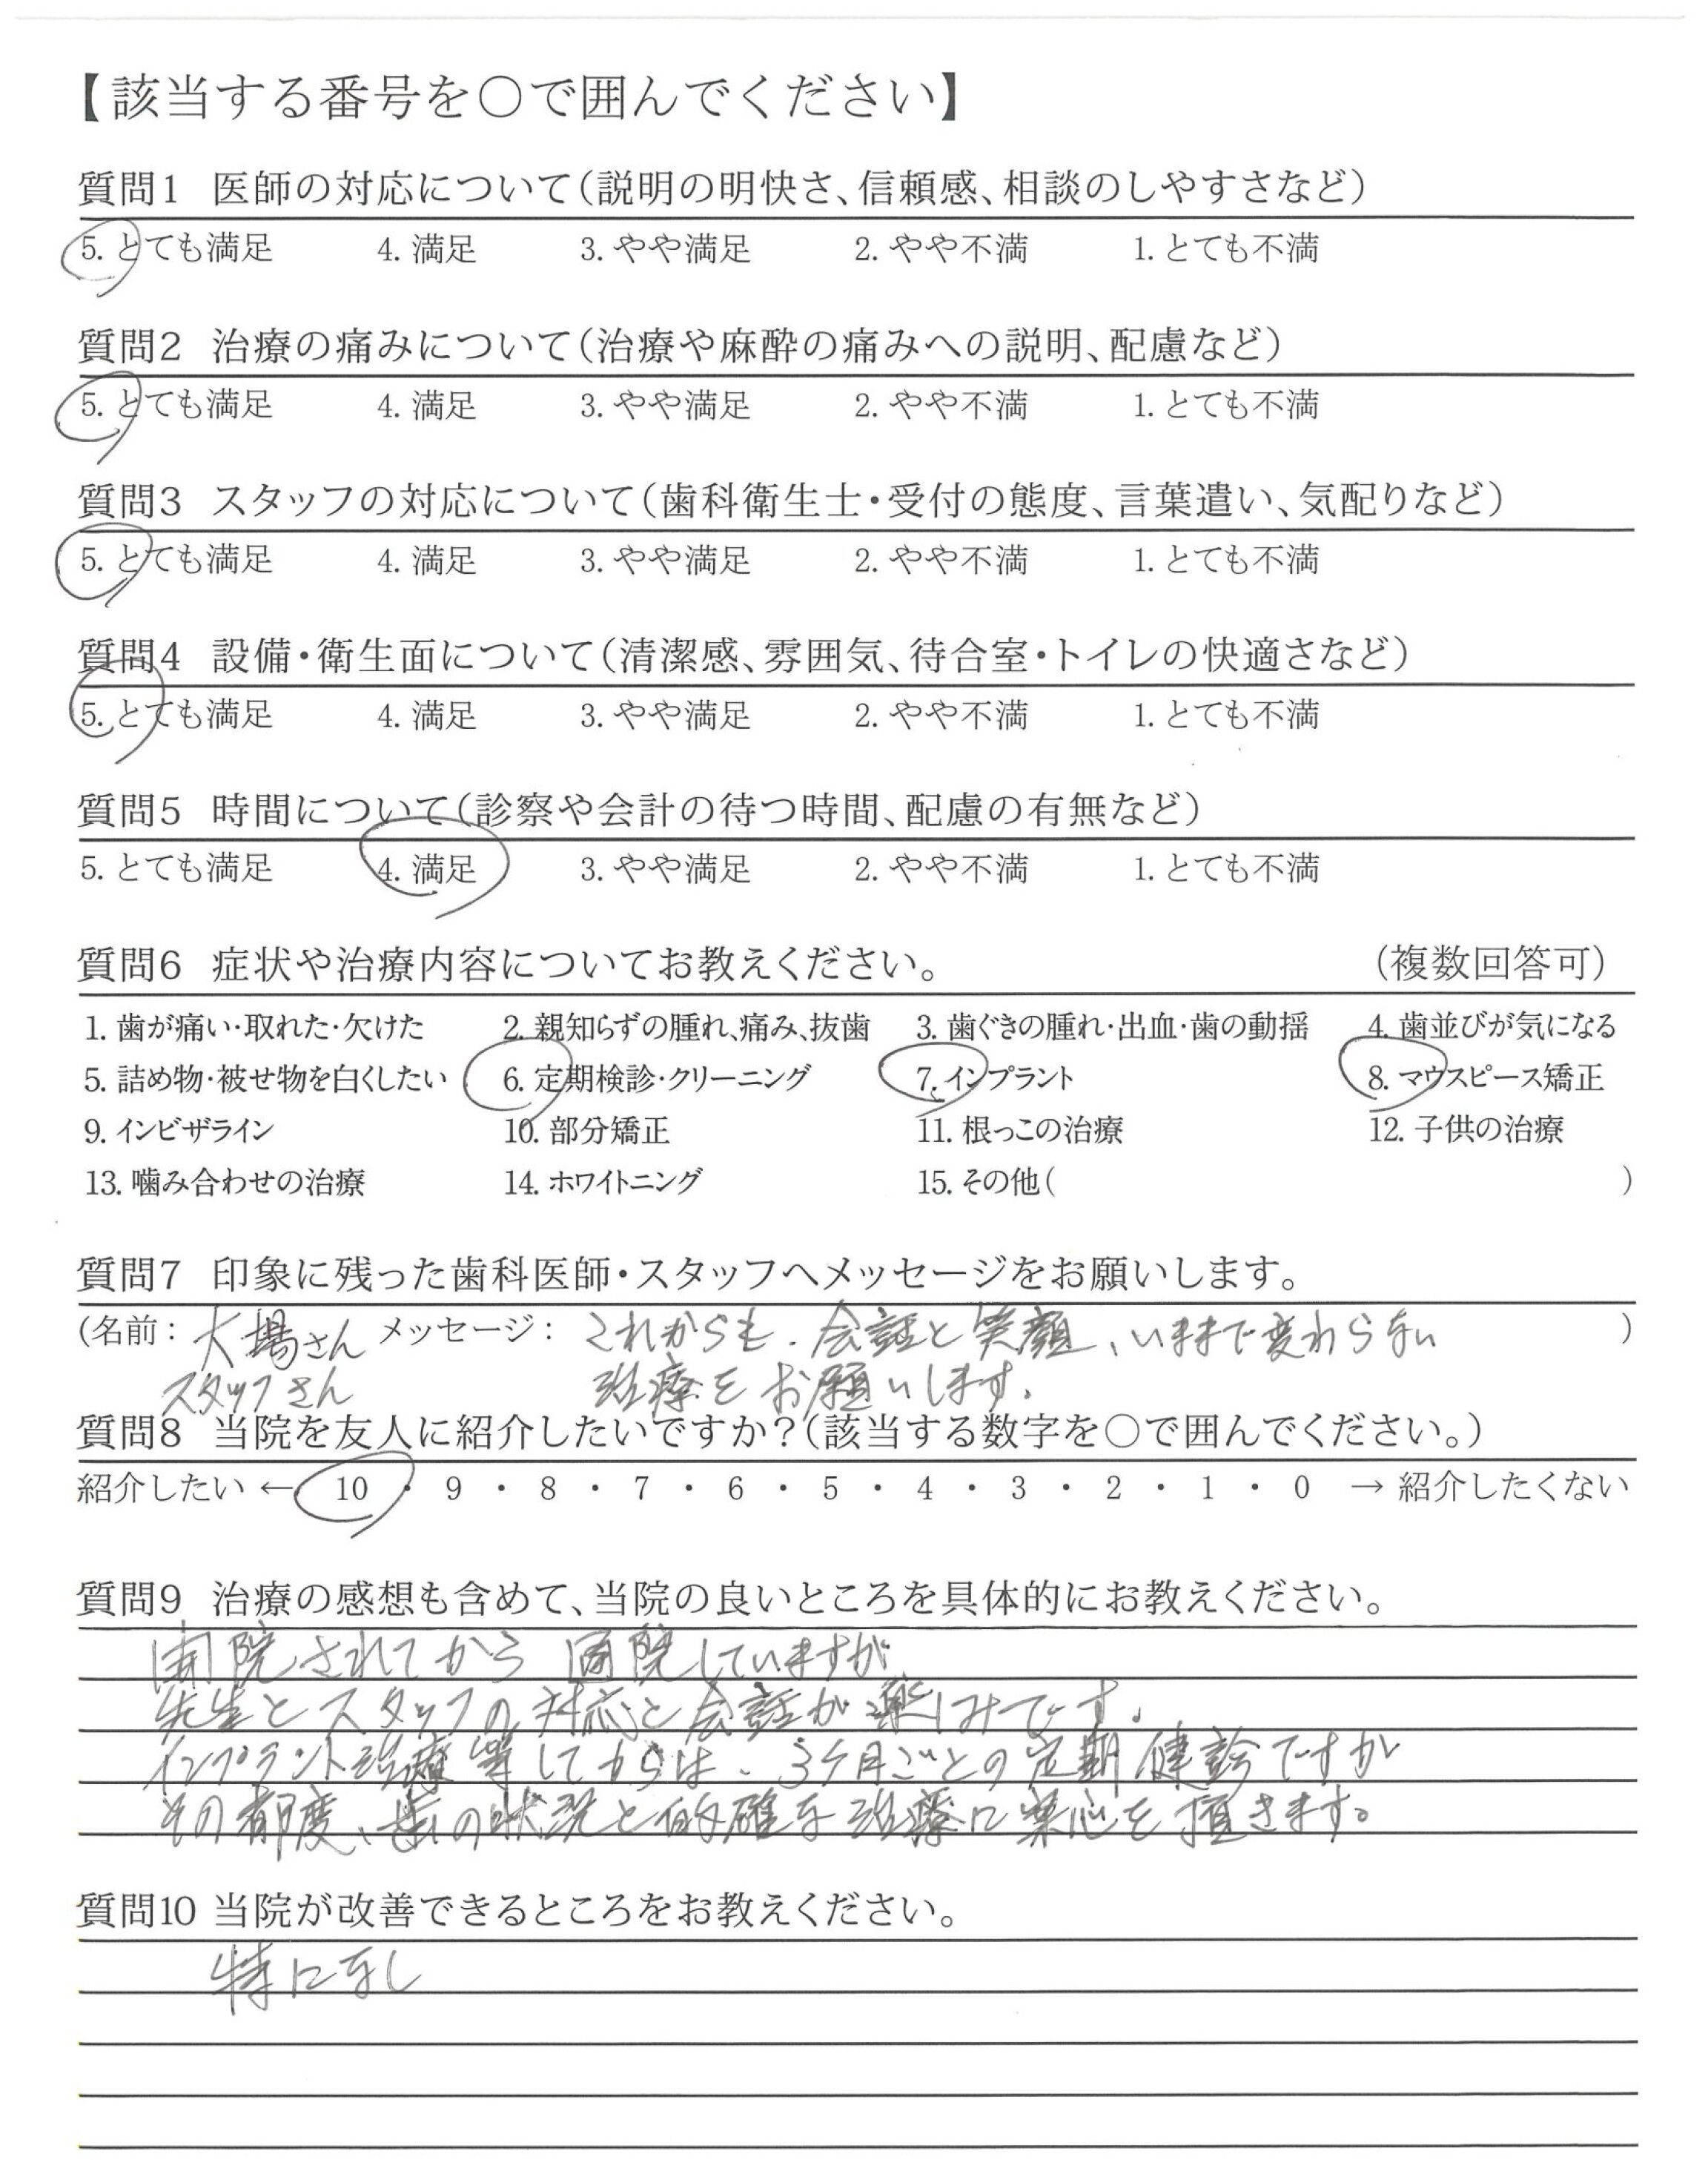 【該当する番号を〇で囲んでください】
質問1 医師の対応について(説明の明快さ、信頼感、相談のしやすさなど)
5. とても満足 4. 満足 3. やや満足 2. やや不満 1. とても不満
質問2 治療の痛みについて(治療や麻酔の痛みへの説明、配慮など)
5. とても満足 4. 満足 3. やや満足 2. やや不満 1. とても不満
質問3 スタッフの対応について(歯科衛生士・受付の態度、言葉遣い、気配りなど)
5. とても満足 4. 満足 3. やや満足 2. やや不満 1. とても不満
質問4 設備・衛生面について(清潔感、雰囲気、待合室・トイレの快適さなど)
5. とても満足 4. 満足 3. やや満足 2. やや不満 1. とても不満
質問5 時間について(診察や会計の待つ時間、配慮の有無など)
5. とても満足 4. 満足 3. やや満足 2. やや不満 1. とても不満
質問6 症状や治療内容についてお教えください。 (複数回答可)
1. 歯が痛い・取れた・欠けた 2. 親知らずの腫れ、痛み、抜歯 3. 歯ぐきの腫れ・出血・歯の動揺 4. 歯並びが気になる
5. 詰め物・被せ物を白くしたい 6. 定期検診・クリーニング 7. インプラント 8. マウスピース矯正
9. インビザライン 10. 部分矯正 11. 根っこの治療 12. 子供の治療
13. 噛み合わせの治療 14. ホワイトニング 15. その他( )
質問7 印象に残った歯科医師・スタッフへメッセージをお願いします。
(名前: 大場さん メッセージ: これからも、会話と笑顔、いままで変わらない )
スタッフさん 治療をお願いします。
質問8 当院を友人に紹介したいですか?(該当する数字を〇で囲んでください。)
紹介したい ← 10 ・ 9 ・ 8 ・ 7 ・ 6 ・ 5 ・ 4 ・ 3 ・ 2 ・ 1 ・ 0 → 紹介したくない
質問9 治療の感想も含めて、当院の良いところを具体的にお教えください。
開院されてから 通院していますが
先生とスタッフの対応と会話が楽しみです。
インプラント治療等してからは、3ケ月ごとの定期健診ですが
その都度、歯の状況と的確な治療に安心を頂きます。
質問10 当院が改善できるところをお教えください。
特になし